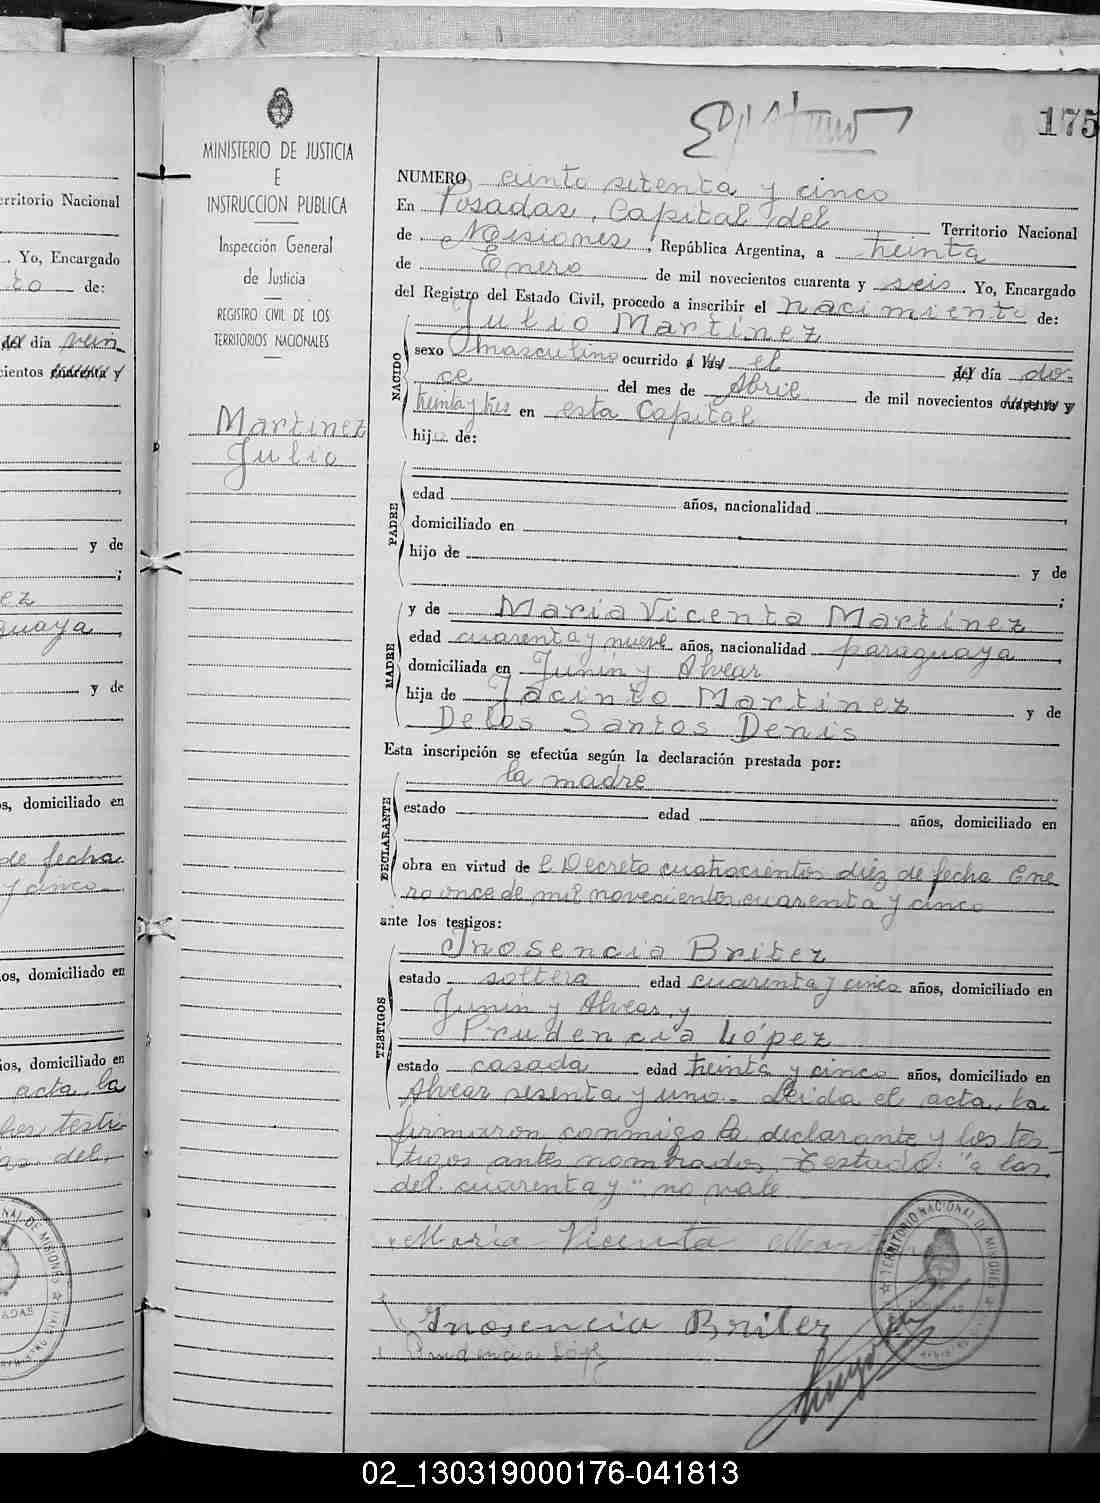 175
MINISTERIO DE JUSTICIA
E
INSTRUCCION PUBLICA
Inspección General
de Justicia
REGISTRO CIVIL DE LOS
TERRITORIOS NACIONALES
Martinez
Julio
NUMERO ciento setenta y cinco
En Posadas, Capital del Territorio Nacional
de Misiones, República Argentina, a treinta
de Enero de mil novecientos cuarenta y seis. Yo, Encargado
del Registro del Estado Civil, procedo a inscribir el nacimiento de:
Julio Martinez
NACIDO
sexo masculino ocurrido a las el del día do-
ce del mes de Abril de mil novecientos cuarenta y
treinta y tres en esta Capital
hijo de:
PADRE
edad años, nacionalidad
domiciliado en
hijo de y de
;
MADRE
y de Maria Vicenta Martinez
edad cuarenta y nueve años, nacionalidad paraguaya
domiciliada en Junin y Alvear
hija de Jacinto Martinez y de
De los Santos Denis
Esta inscripción se efectúa según la declaración prestada por:
la madre
DECLARANTE
estado edad años, domiciliado en
obra en virtud de l Decreto cuatrocientos diéz de fecha Ene-
ro once de mil novecientos cuarenta y cinco
ante los testigos:
Inosencia Britez
TESTIGOS
estado soltera edad cuarenta y cinco años, domiciliado en
Junin y Alvear, y
Prudencia López
estado casada edad treinta y cinco años, domiciliado en
Alvear sesenta y uno. Leida el acta, la
firmaron conmigo la declarante y los tes-
tigos antes nombrados. Testado: "a las
del cuarenta y" no vale
Maria Vicenta
Inosencia Britez
Prudencia López
TERRITORIO NACIONAL DE MISIONES
erritorio Nacional
. Yo, Encargado
to de:
del día vein-
cientos cuarenta y
y de
;
ez
guaya
y de
s, domiciliado en
de fecha
y cinco
os, domiciliado en
ios, domiciliado en
acta, la
los testi-
del
02_130319000176-041813